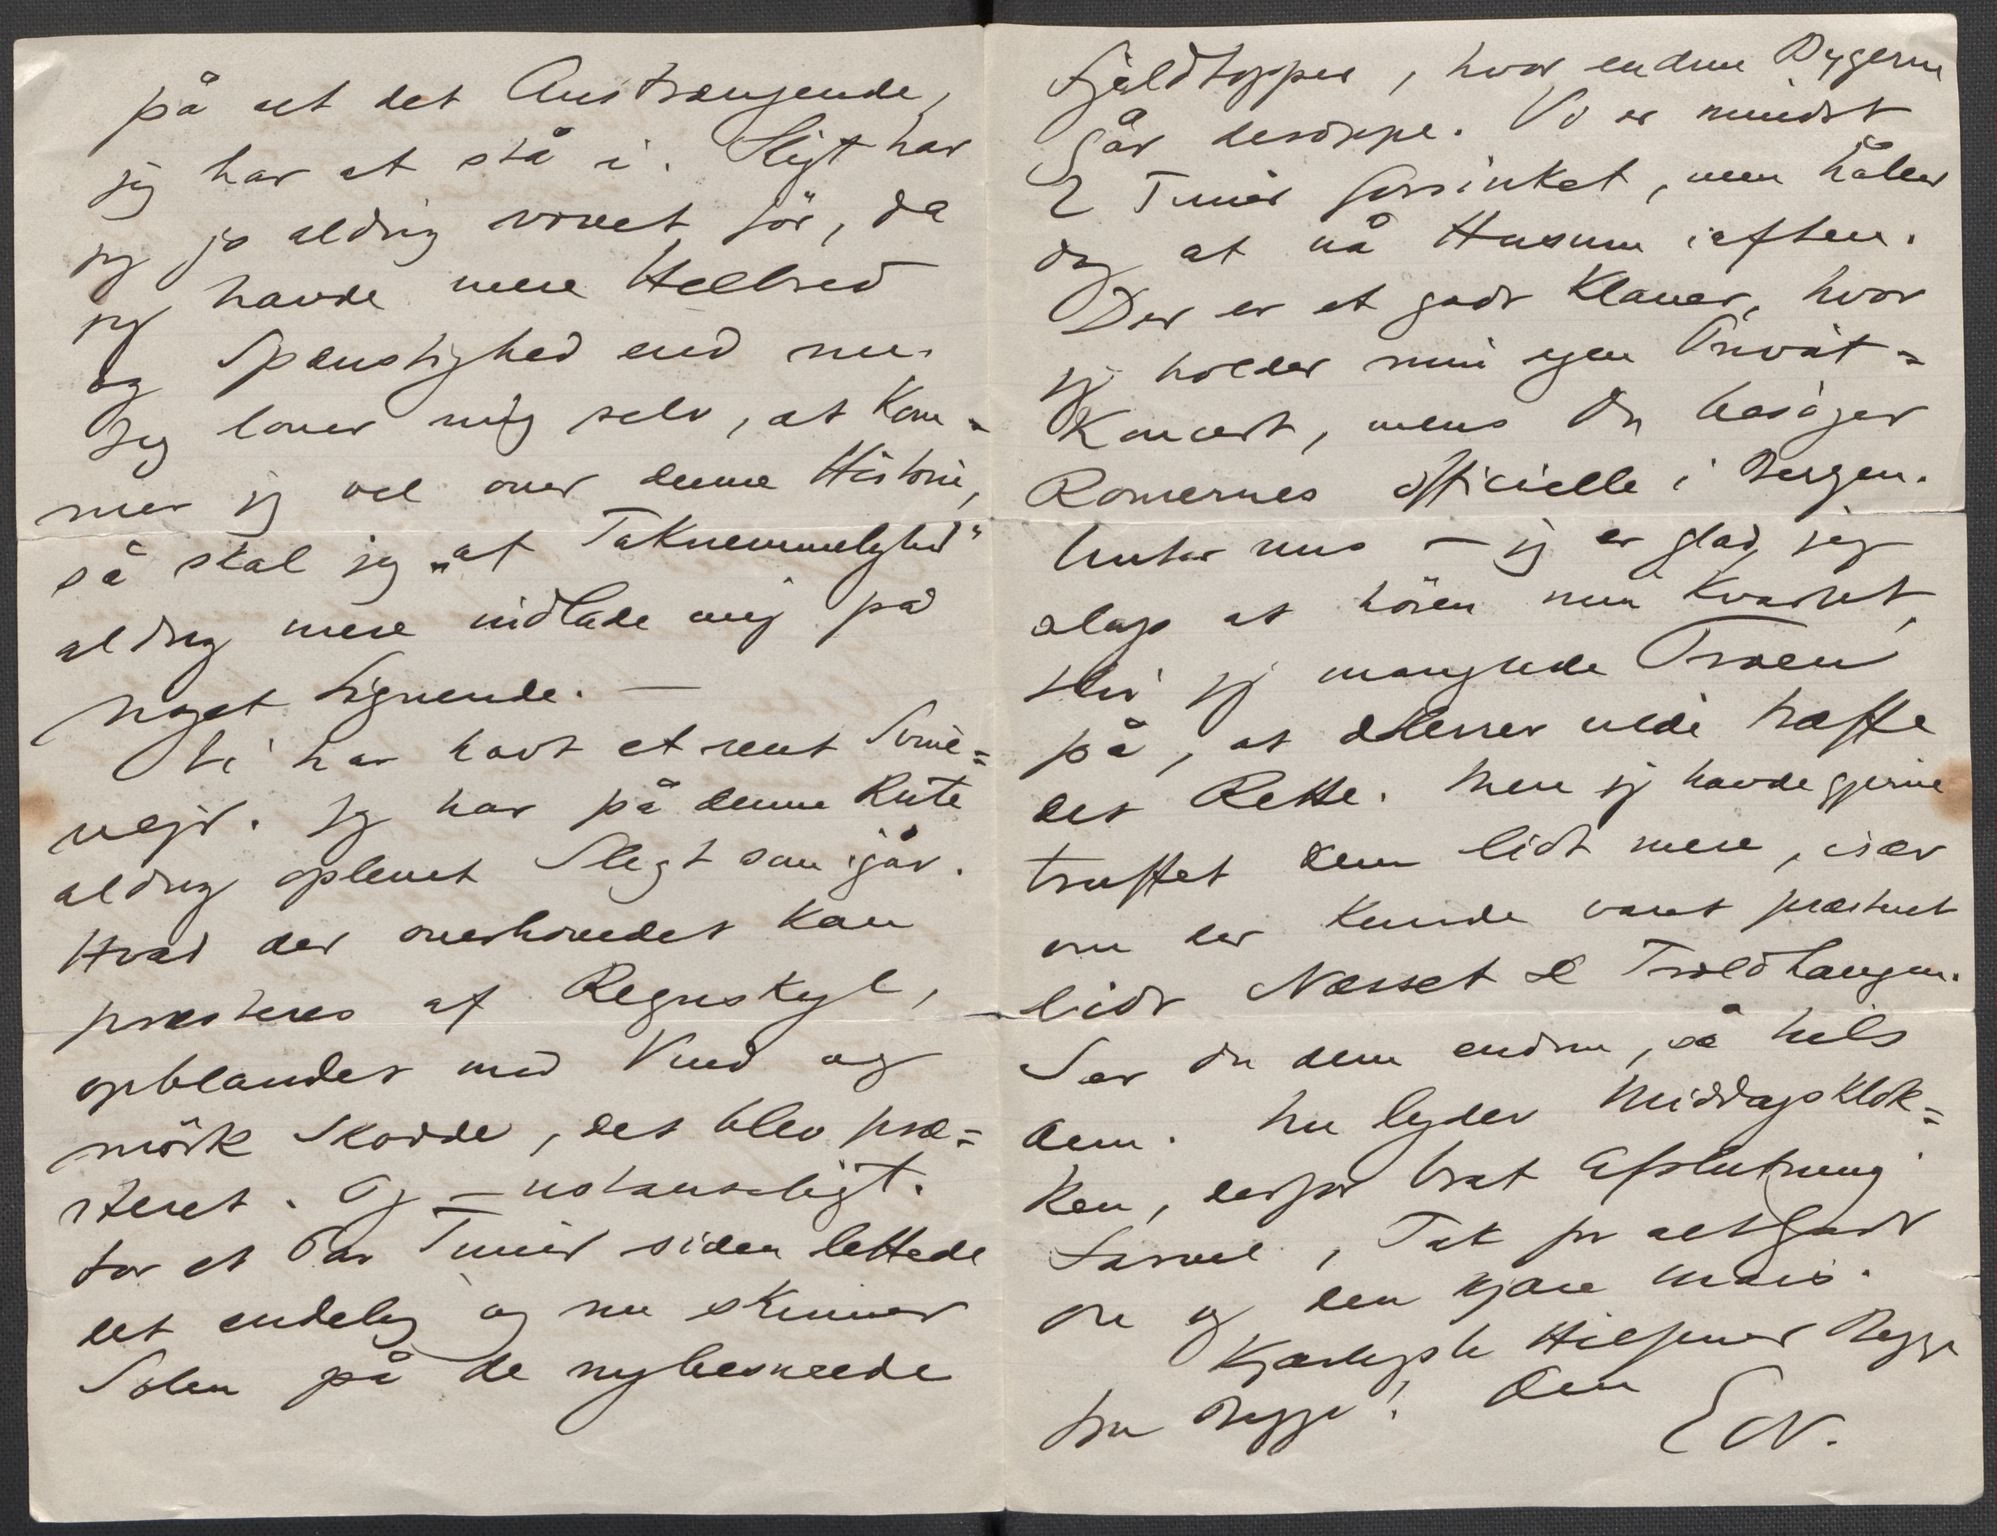 på alt det Anstrængende,
jeg har at stå i. Sligt har
jeg jo aldrig vovet för, da
jeg havde mere Helbred
og Spænstighed end nu.
Jeg lover mig selv, at kom=
mer jeg vel over denne Historie,
så skal jeg „af Taknemmelighed"
aldrig mere indlade mig på
noget Lignende. —
Vi har havt et rent
vejr. Jeg har på denne Rute
aldrig oplevet Sligt som igår.
Hvad der overhovedet kan
præsteres af Regnskyl,
opblandet med Vind og
mörk Skodde, det blev præ=
steret. Og — ustanseligt.
For et Par Timer siden lettede
det endelig og nu skinner
Solen på de nybesneede
Fjeldtopper, hvor endnu Bygerne
går deroppe. Vi er mindst
2 Timer forsinket, men håber
dog at nå Husum iaften.
Der er et godt Klaver, hvor
jeg holder min egen Privat=
Koncert, mens Du besöger
Romernes officielle i Bergen.
Unter uns — jeg er glad, jeg
slap at hören min Kvartet,
thi jeg manglede Troen
på, at d'Herrer vilde træffe
det Rette. Men jeg havde gjerne
truffet dem lidt mere, især
om der kunde været præsteret
lidt Næsset & Troldhaugen.
Ser Du dem endnu, så hils
dem. Nu lyder Middagsklok=
ken, derfor brat Afslutning
Farvel, Tak for alt Godt
Du og den kjære Mais.
Kjærligste Hilsener Begge
fra Begge! Din
Edv.